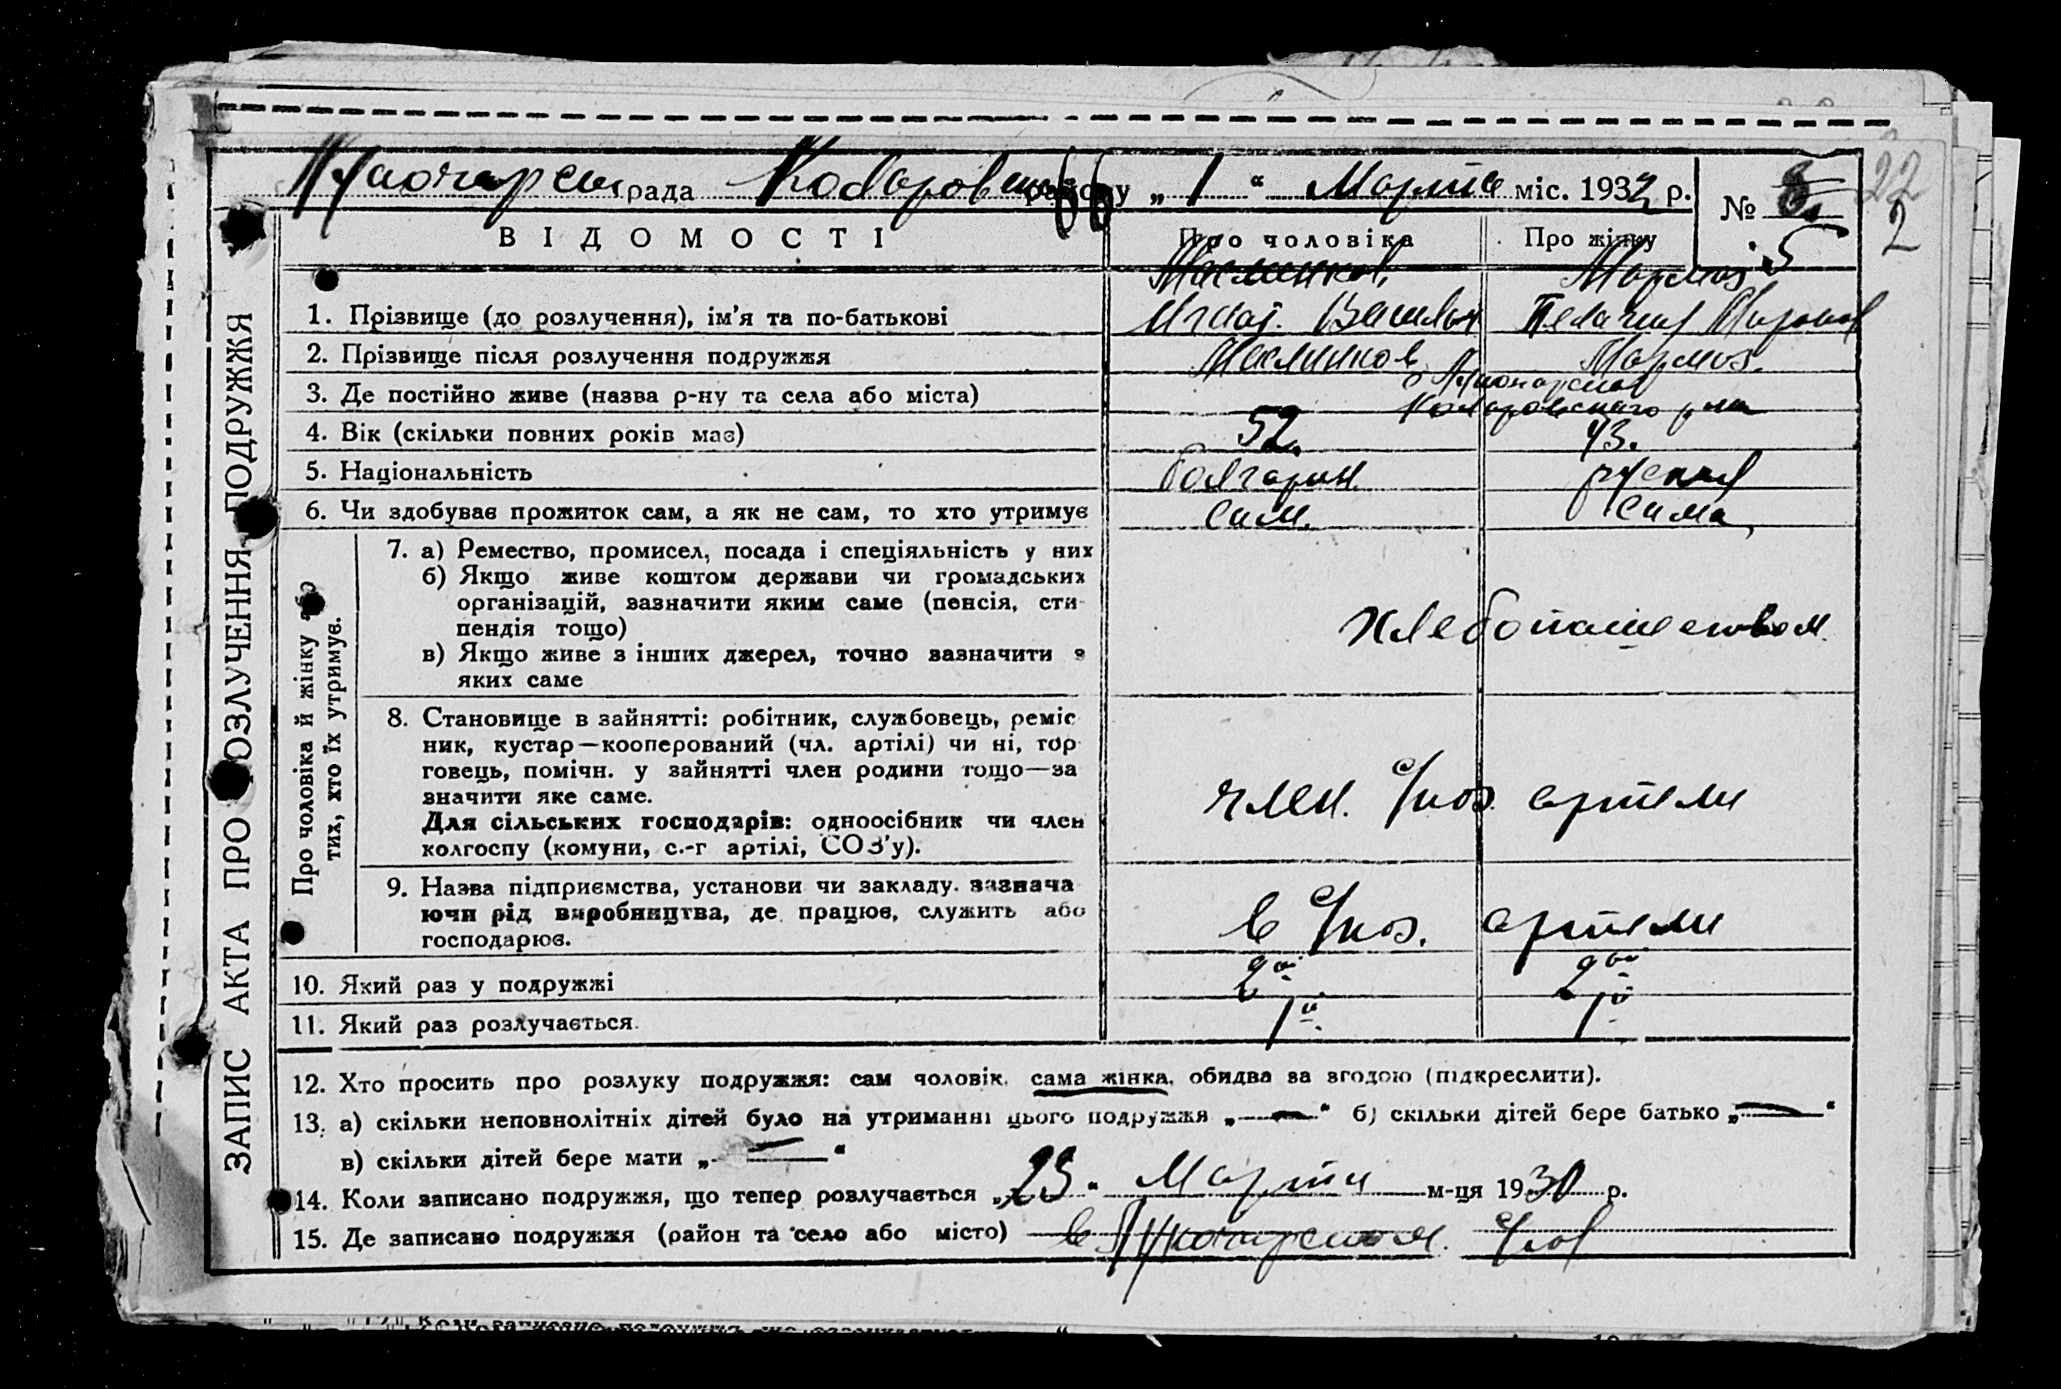 рада району „ 1 “ Марта міс. 1932 р. № 5 22
2
ВІДОМОСТІ Про чоловіка Про жінку
1. Прізвище (до розлучення), ім’я та по-батькові
2. Прізвище після розлучення подружжя
3. Де постійно живе (назва р-ну та села або міста)
4. Вік (скільки повних років має) 52. 43.
5. Національність болгарин. руская
6. Чи здобуває прожиток сам, а як не сам, то хто утримує сам. сама
ЗАПИС АКТА ПРО РОЗЛУЧЕННЯ ПОДРУЖЖЯ
Про чоловіка й жінку або
тих, хто їх утримує.
7. а) Ремество, промисел, посада і спеціяльність у них
б) Якщо живе коштом держави чи громадських
організацій, зазначити яким саме (пенсія, сти-
пендія тощо)
хлебопашеством.
в) Якщо живе з інших джерел, точно зазначити з
яких саме
8. Становище в зайнятті: робітник, службовець, реміс
ник, кустар—кооперований (чл. артілі) чи ні, тор
говець, помічн. у зайнятті член родини тощо—за
значити яке саме. член. с/хоз. артели
Для сільських господарів: одноосібник чи член
колгоспу (комуни, с.-г артілі, СОЗ’у).
9. Назва підприємства, установи чи закладу. зазнача
ючи рід виробництва, де працює, служить або в с/хоз. артели
господарює.
10. Який раз у подружжі 2й 2ой
11. Який раз розлучається. 1й. 1й
12. Хто просить про розлуку подружжя: сам чоловік, сама жінка, обидва за згодою (підкреслити).
13. а) скільки неповнолітніх дітей було на утриманні цього подружжя „—“ б) скільки дітей бере батько „—“
в) скільки дітей бере мати „—“
14. Коли записано подружжя, що тепер розлучається „23“ Марта м-ця 1930 р.
15. Де записано подружжя (район та село або місто) в